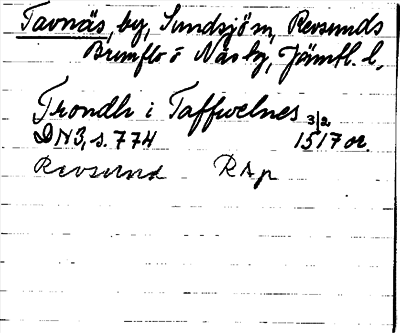 Tavnäs, by, Sundsjö sn, Revsunds
Brunflo o Näs tg, Jämtl. l.
Trondh i Taffwelnes
3/2
DN 3, s. 774 1517 or.
Revsund RAp